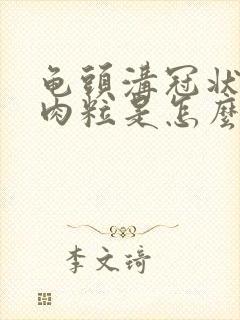 龟頭溝冠状
肉粒是怎麼
李文琦